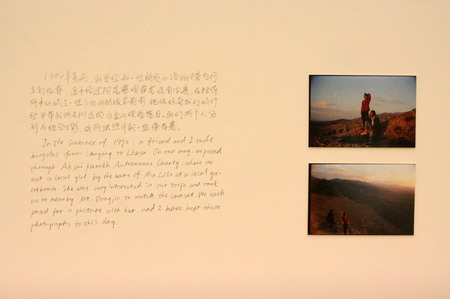 1990年夏天，我曾经和一位朋友从洛阳骑着自行
车到拉萨。途中经过阿克塞哈萨克族自治县，在招待
所中认识了一位当地的姑娘莉莉。她很好奇我们的行
并带我们去附近的当金山观看落日。我们两个人分
别与她合影，这两张照片我一直保存着。
In the summer of 1990, a friend and I rode
bicycles from Luoyang to Lhasa. On our way, we passed
through Aksai Kazakh Autonomous County, where we
met a local girl by the name of Ma Lili at a local gu-
esthouse. She was very interested in our trip and took
us to nearby Mt. Dangjin to watch the sunset. We each
posed for a picture with her, and I have kept these
photographs to this day.